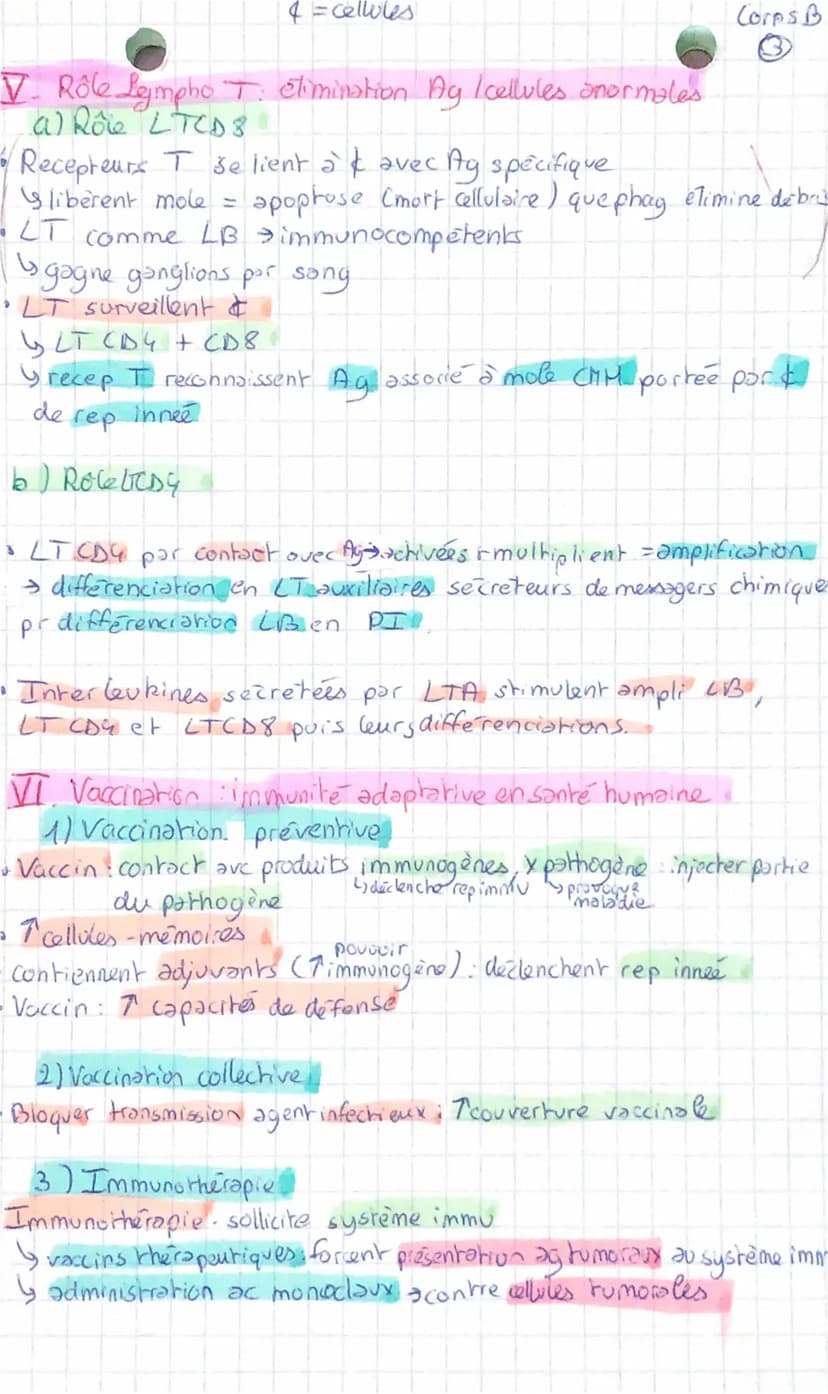 ¢ = cellules
Corps B
3
V. Rôle Lympho T : élimination Ag / cellules anormales
a) Rôle LTCD8
• Recepteurs T se lient à ¢ avec Ag spécifique
↳ libèrent mole = apoptose (mort cellulaire) que phag élimine débris
• LT comme LB → immunocompétents
↳ gagne ganglions par sang
• LT surveillent ¢
↳ LT CD4 + CD8
↳ recep T reconnaissent Ag associé à mole CMH portée par ¢
de rep innée
b) Role LTCD4
• LT CD4 par contact avec Ag → activées + multiplient = amplification
→ différenciation en LT auxiliaires secréteurs de messagers chimique
pr différenciation LB en PI.
• Interleukines secretées par LTA stimulent ampli LB,
LT CD4 et LTCD8 puis leurs différenciations.
VI. Vaccination : immunité adaptative en santé humaine
1) Vaccination préventive
• Vaccin : contact avc produits immunogènes, x pathogène : injecter partie
↳ déclenche rep immu ↳ provoque maladie
du pathogène
• ↑ cellules-mémoires
pouvoir
contiennent adjuvants (↑ immunogène) : déclenchent rep innée
• Vaccin : ↑ capacités de défense
2) Vaccination collective
• Bloquer transmission agent infectieux ; ↑ couverture vaccinale
3) Immunothérapie
Immunothérapie. sollicite système immu
↳ vaccins thérapeutiques : forcent présentation ag tumoraux au système imm
↳ administration ac monoclaux → contre cellules tumorales